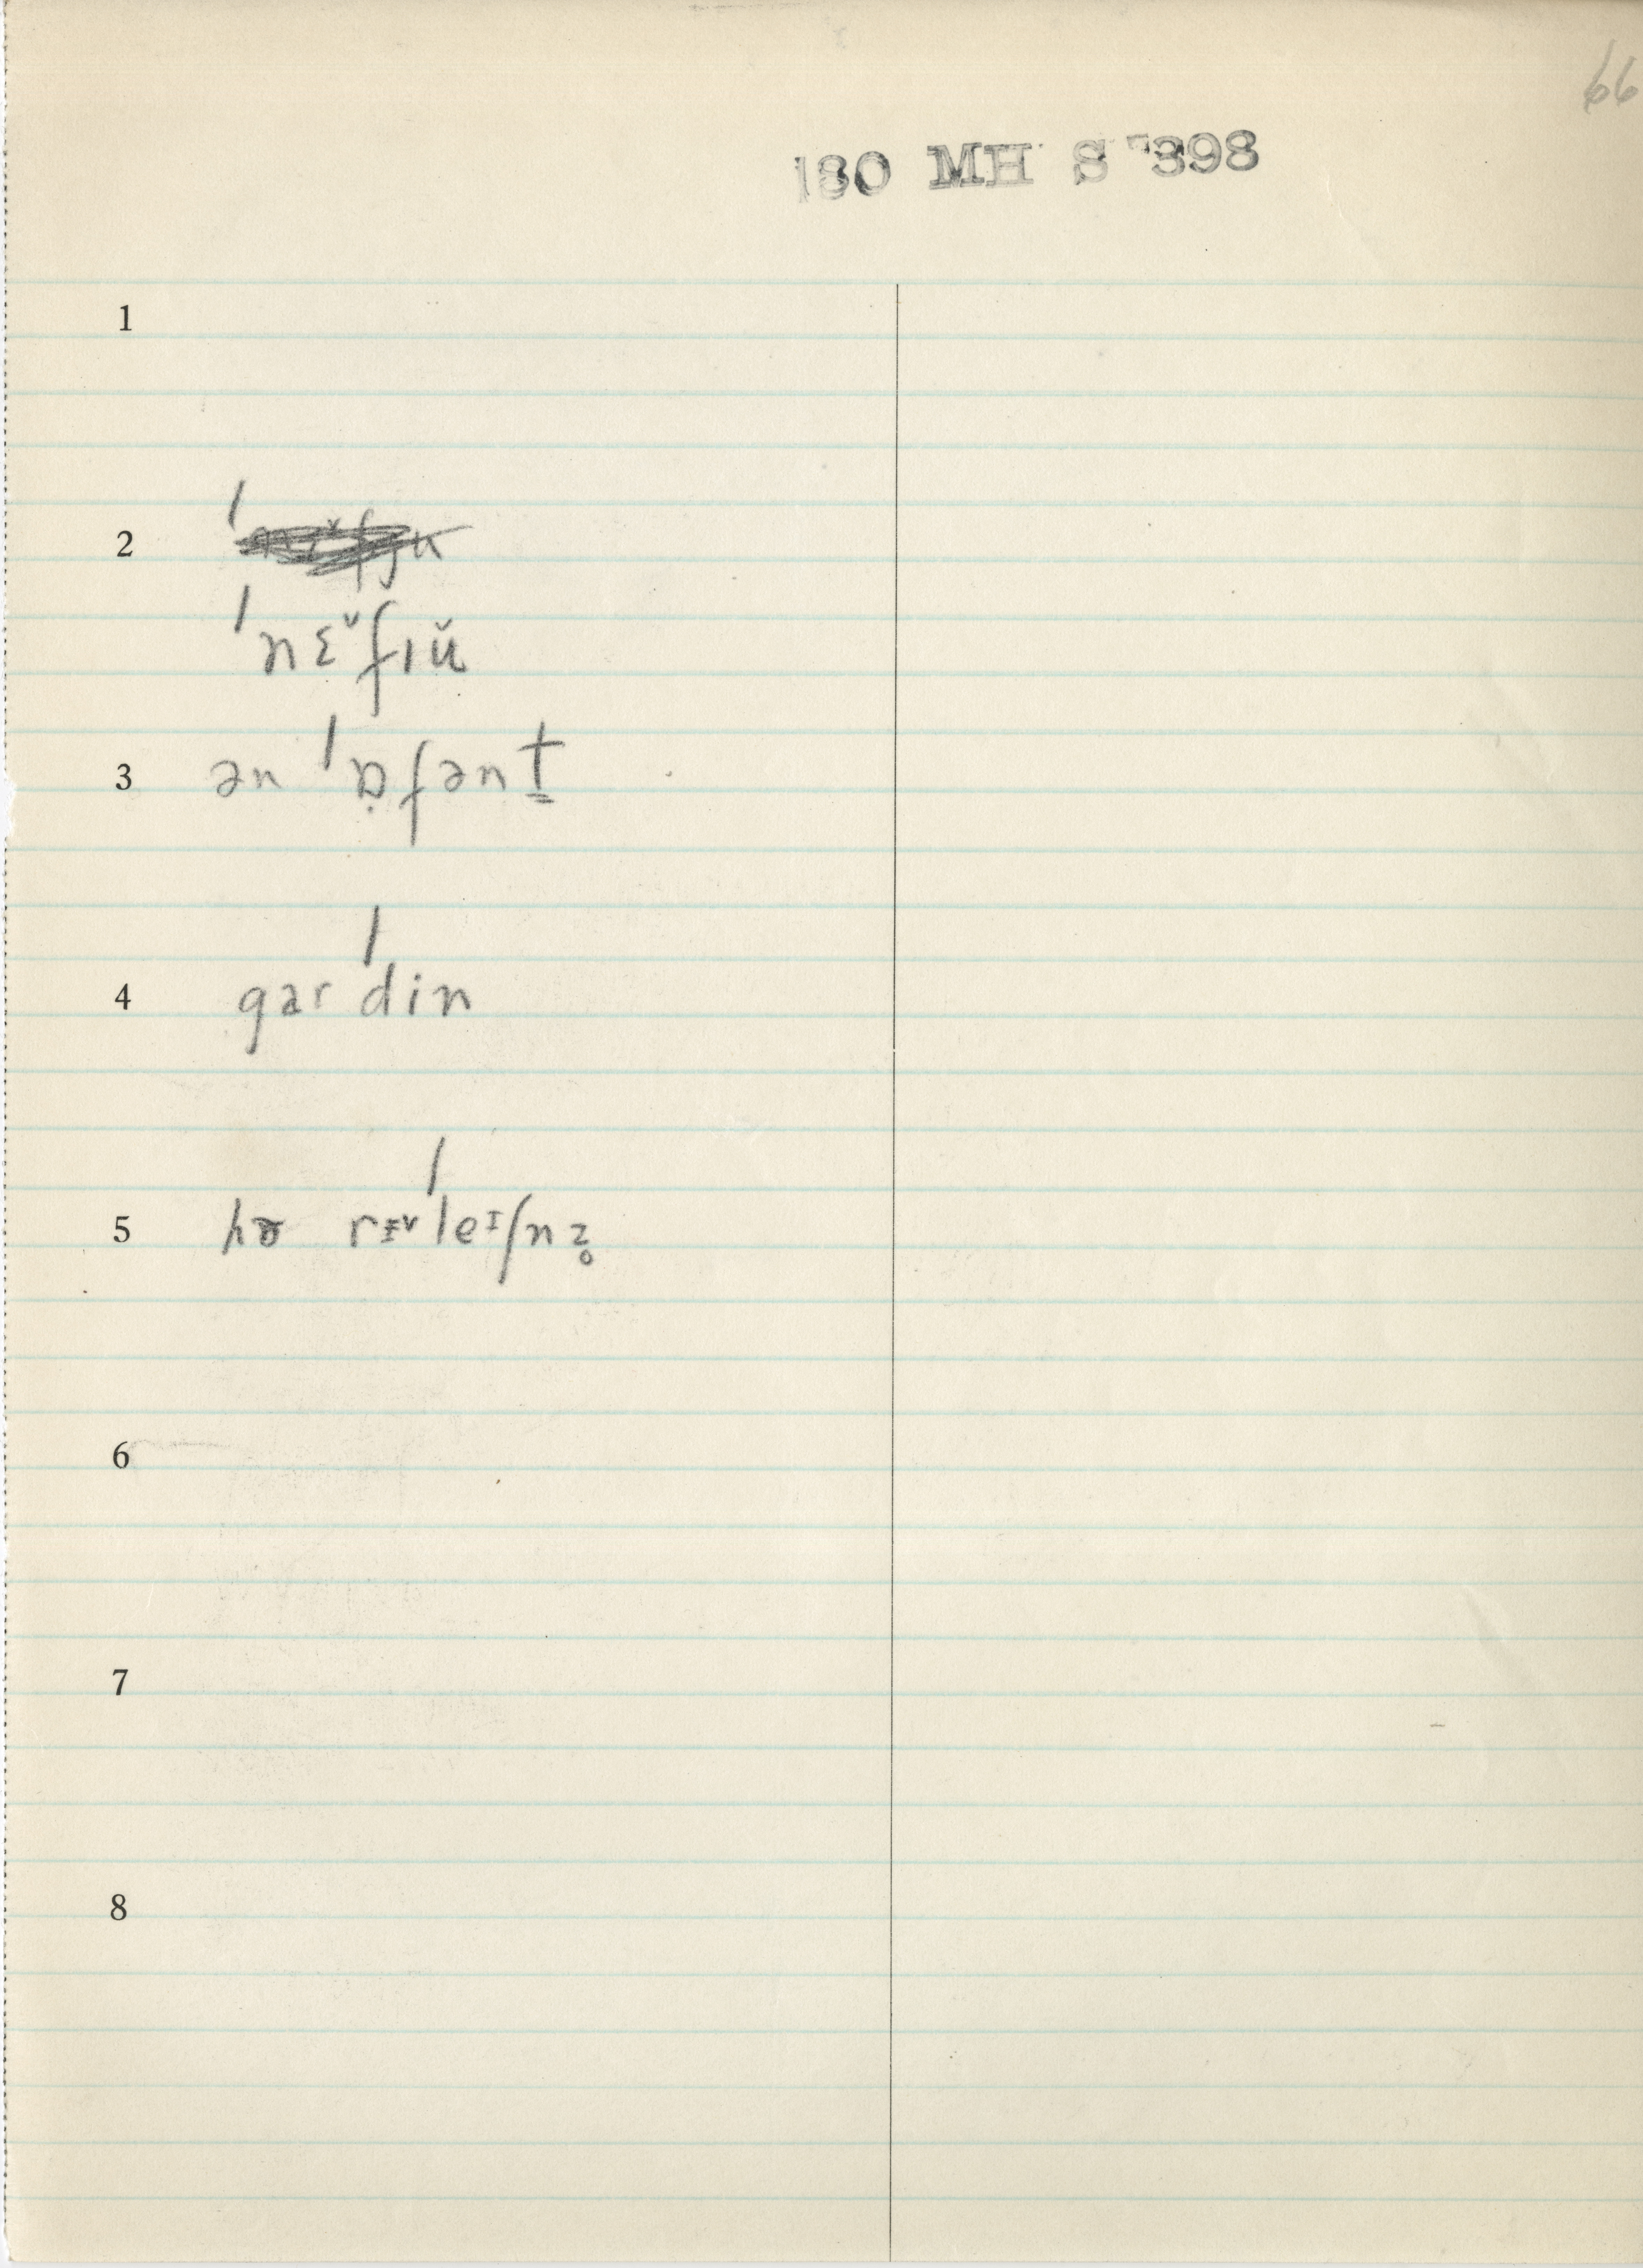 66
180 MH S 398
1
2
ˈnɛ˅fɪŭ
3 ən ˈɒ̣fənt̳
4 garˈdin
5 hɚ rɪ˅ˈleɪʃnz̥
6
7
8